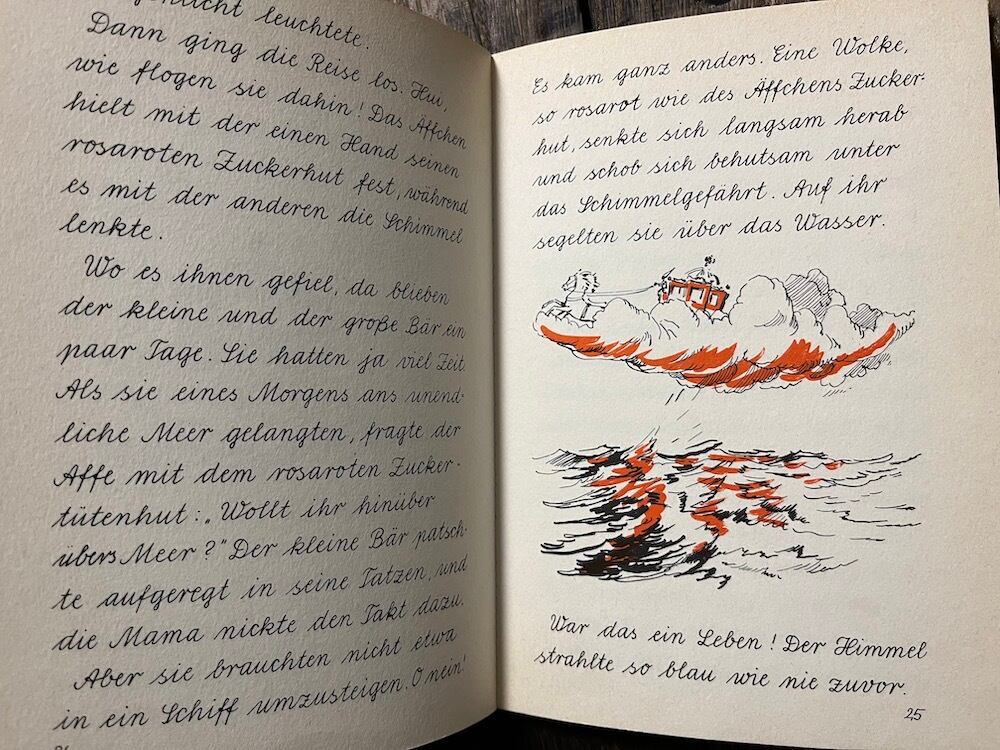 leuchtete.
Dann ging die Reise los. Hui,
wie flogen sie dahin! Das Äffchen
hielt mit der einen Hand seinen
rosaroten Zuckerhut fest, während
es mit der anderen die Schimmel
lenkte.
Wo es ihnen gefiel, da blieben
der kleine und der große Bär ein
paar Tage. Sie hatten ja viel Zeit.
Als sie eines Morgens ans unend-
liche Meer gelangten, fragte der
Affe mit dem rosaroten Zucker-
tütenhut: „Wollt ihr hinüber
übers Meer?" Der kleine Bär patsch-
te aufgeregt in seine Tatzen, und
die Mama nickte den Takt dazu.
Aber sie brauchten nicht etwa
in ein Schiff umzusteigen. O nein!
Es kam ganz anders. Eine Wolke,
so rosarot wie des Äffchens Zucker-
hut, senkte sich langsam herab
und schob sich behutsam unter
das Schimmelgefährt. Auf ihr
segelten sie über das Wasser.
War das ein Leben! Der Himmel
strahlte so blau wie nie zuvor.
25